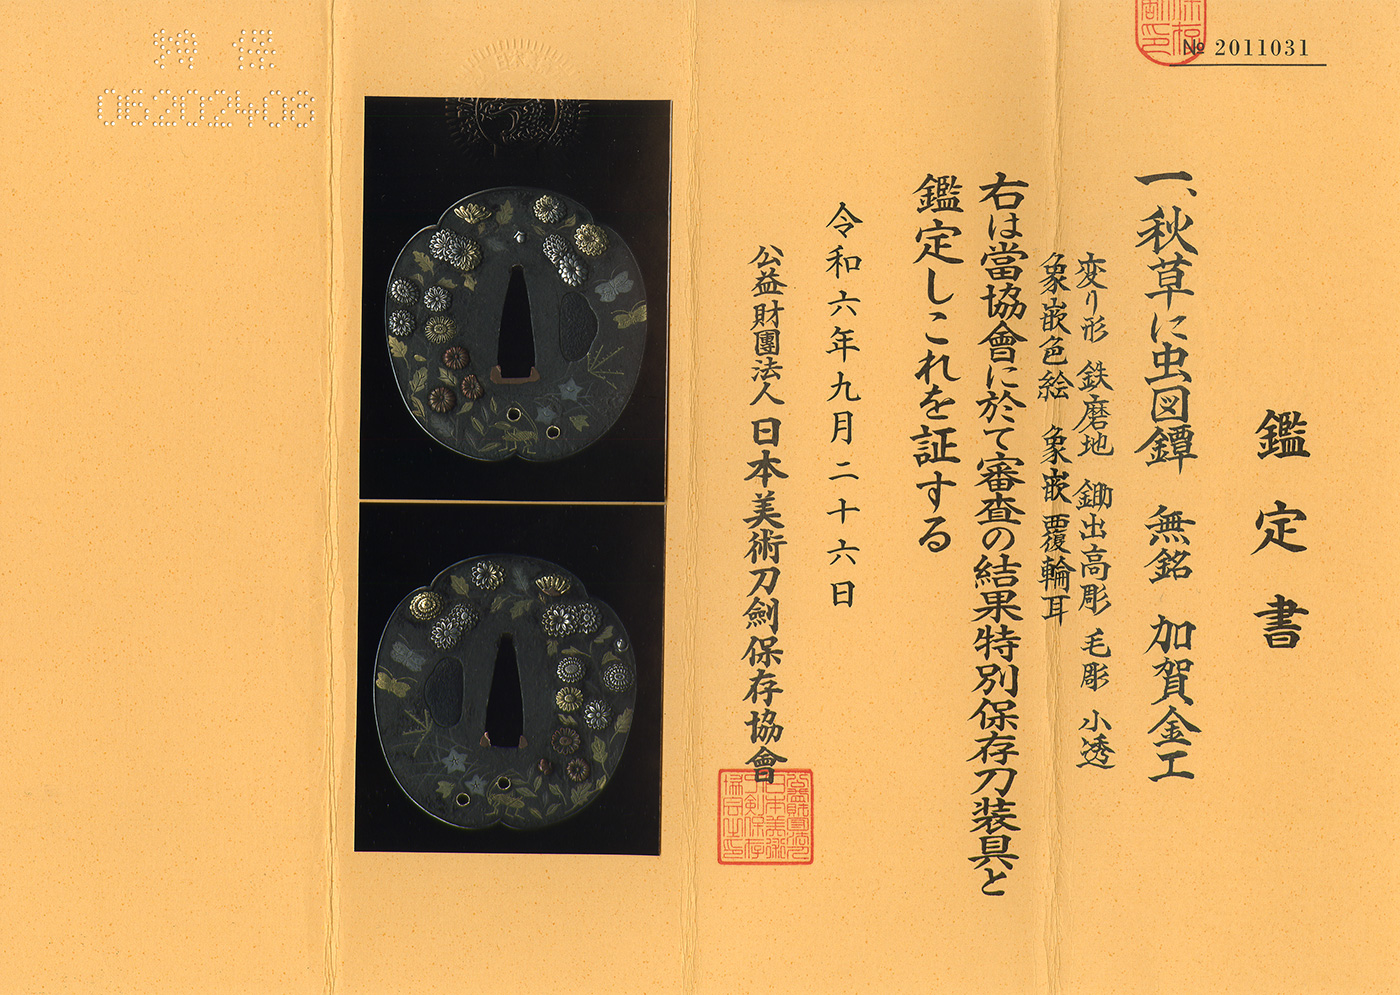 № 2011031
鑑定書
一、秋草に虫図鐔 無銘 加賀金工
変り形 鉄磨地 鋤出高彫 毛彫 小透
象嵌色絵 象嵌覆輪耳
右は當協會に於て審査の結果特別保存刀装具と
鑑定しこれを証する
令和六年九月二十六日
公益財團法人 日本美術刀劍保存協會
06202408